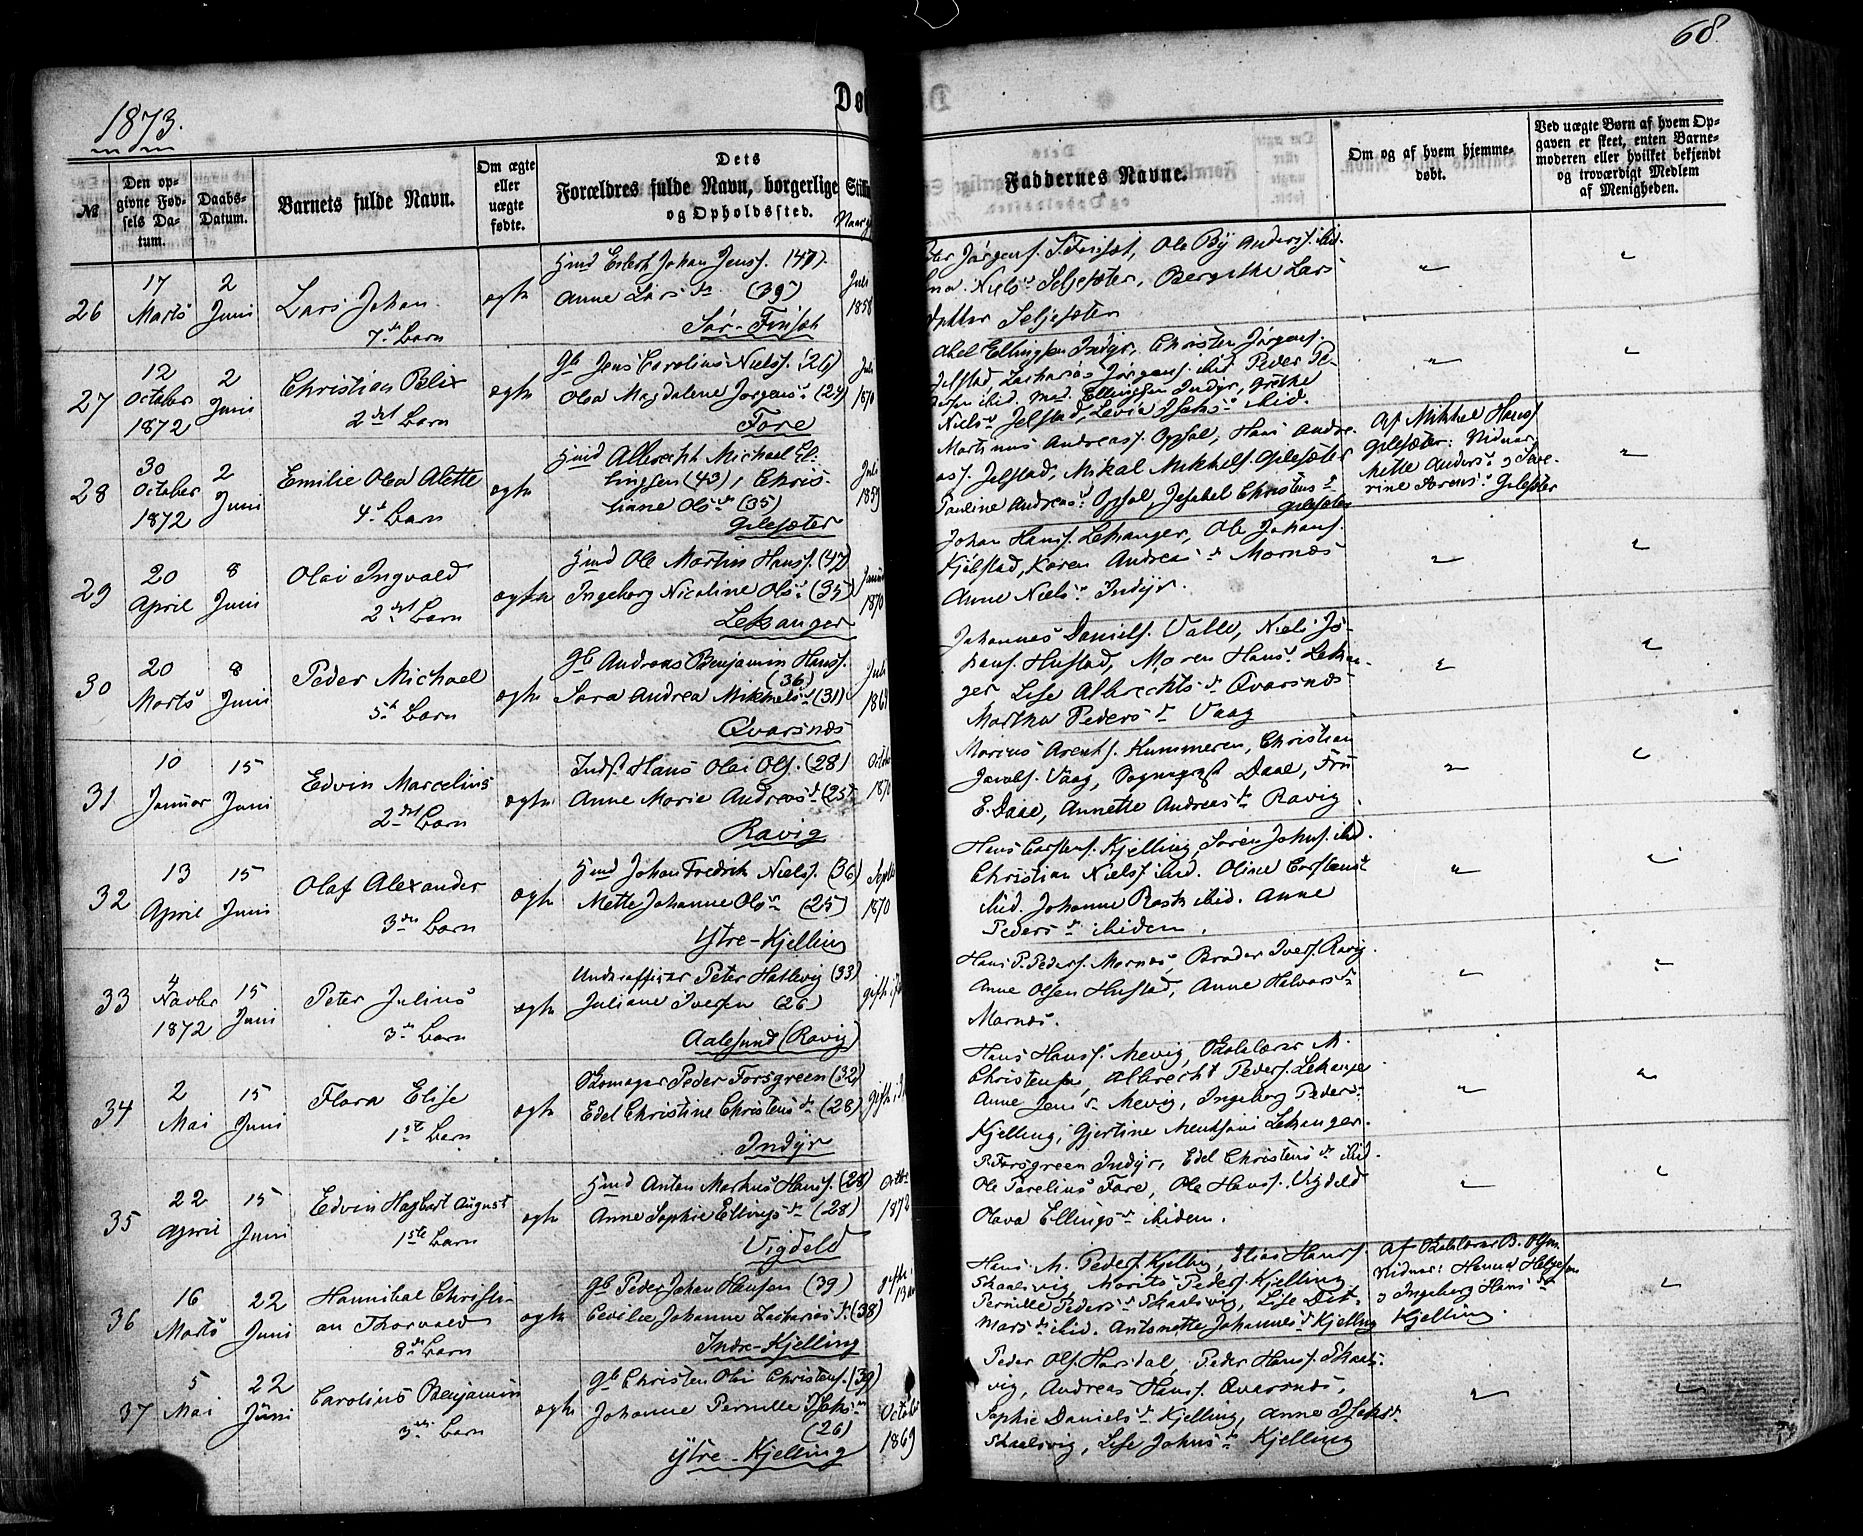 68.
1873.
Dø
№
Den opgivne Fødsels Datum.
Daabs-Datum.
Barnets fulde Navn.
Om ægte eller uægte fødte.
Dets Forældres fulde Navn, borgerlige
og Opholdssted.
Faddernes Navne.
Om og af hvem hjemmedøbt.
Ved uægte Børn af hvem Opgaven er skeet, enten Barnemoderen eller hvilket bekjendt og troværdigt Medlem af Menigheden.
26
17 Marts
2 Juni
Lars Johan
7de Barn
ægte
Gmd Johan Jenss. (47)
Anne Larsdr (39)
Sør-Finset
Juli 1858
Jørgens. S. Finset, Ole By Anderss. ibid.
Nielsdr Seljesæter, Bergithe Lars
datter Seljesæter
27
12 October 1872
2 Juni
Christian Pelix
2det Barn
ægte
Gb Jens Carolius Nielss. (26)
Olea Magdalene Jørgensdr (29)
Fore
Juli 1870
Abel Ellingsen Indyr, Christen Jørgens.
Jelstad, Zacharias Jørgens. ibid Peder Pe-
ibid. Mad. Ellingsen Indyr, Grethe
Nielsdr Jelstad, Isaksdr ibid.
28
30 October 1872
2 Juni
Emilie Olea Alette
4de Barn
ægte
Gmd Albrecht Michael El-
lingsen (43), Chris-
tiane Olsdr (35)
Gilesæter
Juli 1859
Martinus Andreass. Opsal, Hans Andre-
ass. Jelstad, Mikal Mikkels. Gilesæter
Pauline Andreasdr Opsal, Jesabel Christensdr
Gilesæter
Af Mikkel Hanss
Gilesæter: Vidner
Mette Andersdr og
rine Gilesæter
29
20 April
8 Juni
Olai Ingvald
2det Barn
ægte
Gmd Ole Martin Hanss. (47)
Ingeborg Nicoline Olsdr (35)
Lekanger
1870
Johan Hanss. Lekanger, Ole Johans.
Kjelstad, Karen Andreasdr Mornes
Anne Nielsdr Indyr.
30
20 Marts
8 Juni
Peder Michael
5te Barn
ægte
Gb Andreas Benjamin Hanss.
(36)
Sara Andrea Mikkelsdr (31)
Qvarsnæs
Juli 1861
Johannes Daniels. Valle, Niels Jo-
hans. Hustad, Maren Hansdr Lekan-
ger Lise Albrechtsdr Qvarsnæs
Martha Pedersdr Vaag
31
10 Januar
15 Juni
Edvin Marcelius
2det Barn
ægte
Inds. Hans Olai Ols. (28)
Anne Marie Andreasdr (25)
Ravig
1870
Marius Arents. Kummeren, Christian
Jacobs. Vaag, Sognepræst Daae, Fru
E. Daae, Annette Andreasdr Ravig.
32
13 April
15 Juni
Olaf Alexander
3die Barn
ægte
Gmd Johan Fredrik Nielss. (36)
Mette Johanne Olsdr (25)
Ytre-Kjelling
Septb 1870
Hans Carstens. Kjelling, Søren Johns. ibid.
Christian Nielss ibid. Oline Carstensdr
ibid. Johanne Rask ibid. Anne
Pedersdr ibidem.
33
4 Novbr 1872
15 Juni
Peter Julius
3de Barn
ægte
Underofficer Peter Hatlevig (33)
Juliane Iversen (26)
Aalesund (Ravig)
gift
Hans P. Peders. Mornes, Broder Ivers. Ravig
Anne Olsen Hustad, Anne Halvorsdr
Mornes.
34
2 Mai
15 Juni
Flora Elise
1ste Barn
ægte
Skomager Peder Forsgreen (32)
Edel Christine Christensdr (28)
Indyr
gift
Hans Hanss. Mevig, Skolelærer M.
Christensen, Albrecht Peders. Lekanger
Anne Jensdr Mevig, Ingeborg Pedersdr
Kjelling, Gjertine Lekanger.
35
22 April
15 Juni
Edvin Hagbart August
1ste Barn
ægte
Gmd Anton Markus Hanss. (28)
Anne Sophie Ellingsdr (28)
Vigdeld
Octbr 1872
P. Forsgreen Indyr, Edel Christensdr ibid.
Ole Parelius Fore, Ole Hanss. Vigdeld
Olava Ellingsdr ibidem.
36
16 Marts
22 Juni
Hannibal Christi-
an Thorvald
8de Barn
ægte
Gb Peder Johan Hansen (39)
Cecilie Johanne Zachariasdr (38)
Indre-Kjelling
gifte 13
Hans M. Peders. Kjelling, Elias Hanss.
Skaalsvig, Morits Peders. Kjelling
Pernille Pedersdr Skaalsvig, Lise Det-
marsdr ibid. Antonette Johannesdr Kjelling
Af Skolelærer B. Olsen.
Vidner: Helgesen
og Ingeborg Hansdr
Kjelling.
37
5 Mai
22 Juni
Carolius Benjamin
3die Barn
ægte
Gb Christen Olai Christens. (39)
Johanne Pernille Isaksdr
(26)
Ytre-Kjelling
October 1869
Peder Ols. Horsdal, Peder Hanss. Skaals-
vig, Andreas Hanss. Qvarsnæs,
Sophie Danielsdr Kjelling, Anne Isaksdr
Skaalsvig, Lise Johnsdr Kjelling